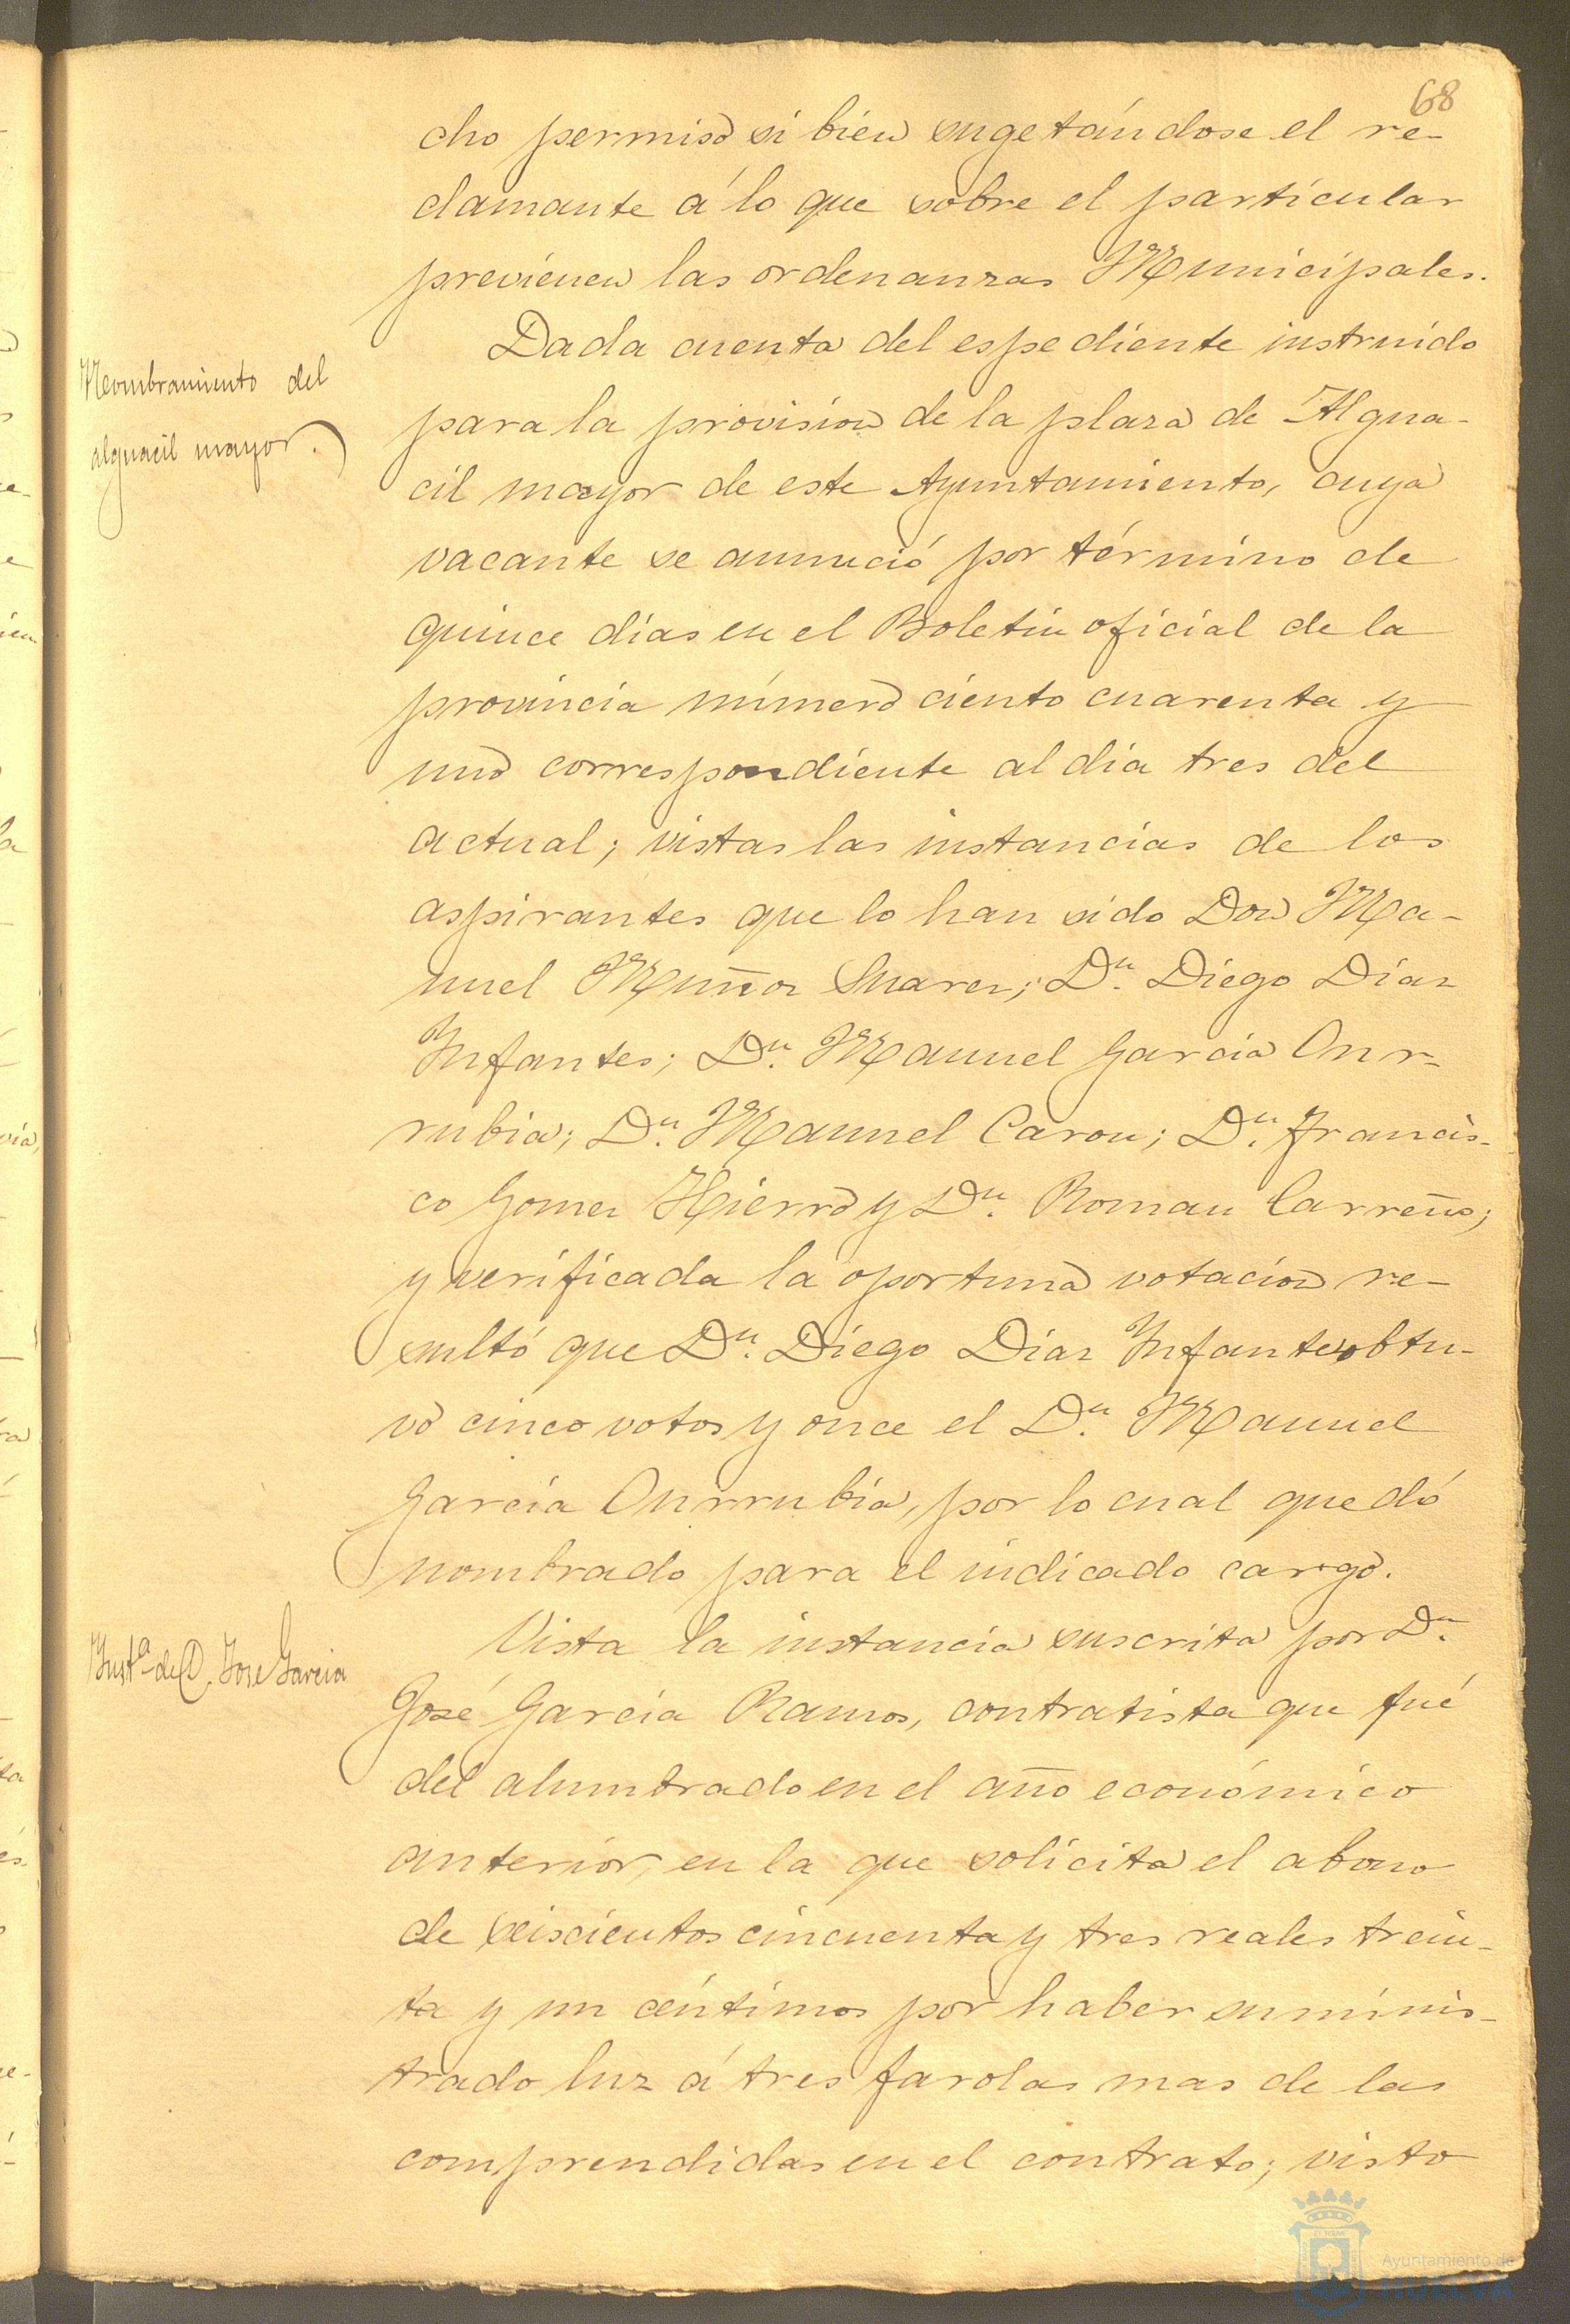 68
cho permiso si bien sugetándose el re-
clamante á lo que sobre el particular
previenen las ordenanzas Municipales.
Nombramiento del
alguacil mayor.
Dada cuenta del espediente instruido
para la provision de la plaza de Algua-
cil mayor de este Ayuntamiento, cuya
vacante se anunció por término de
quince dias en el Boletin oficial de la
provincia número ciento cuarenta y
uno correspondiente al dia tres del
actual; vistas las instancias de los
aspirantes que lo han sido Don Ma-
nuel Muñoz Suarez; Dn. Diego Diaz
Infantes; Dn. Manuel Garcia Onr-
rubia; Dn. Manuel Caron; Dn. Francis-
co Gomez Hierro y Dn. Roman Carreño;
y verificada la oportuna votacion re-
sultó que Dn. Diego Diaz Infantes obtu-
vo cinco votos y once el Dn. Manuel
Garcia Onrrubia, por lo cual quedó
nombrado para el indicado cargo.
Insta. de D. Jose Garcia
Vista la instancia suscrita por Dn.
José Garcia Ramos, contratista que fué
del alumbrado en el año económico
anterior, en la que solicita el abono
de seiscientos cincuenta y tres reales trein-
ta y un céntimos por haber suminis-
trado luz á tres farolas mas de las
comprendidas en el contrato; visto
Ayuntamiento de
HUELVA